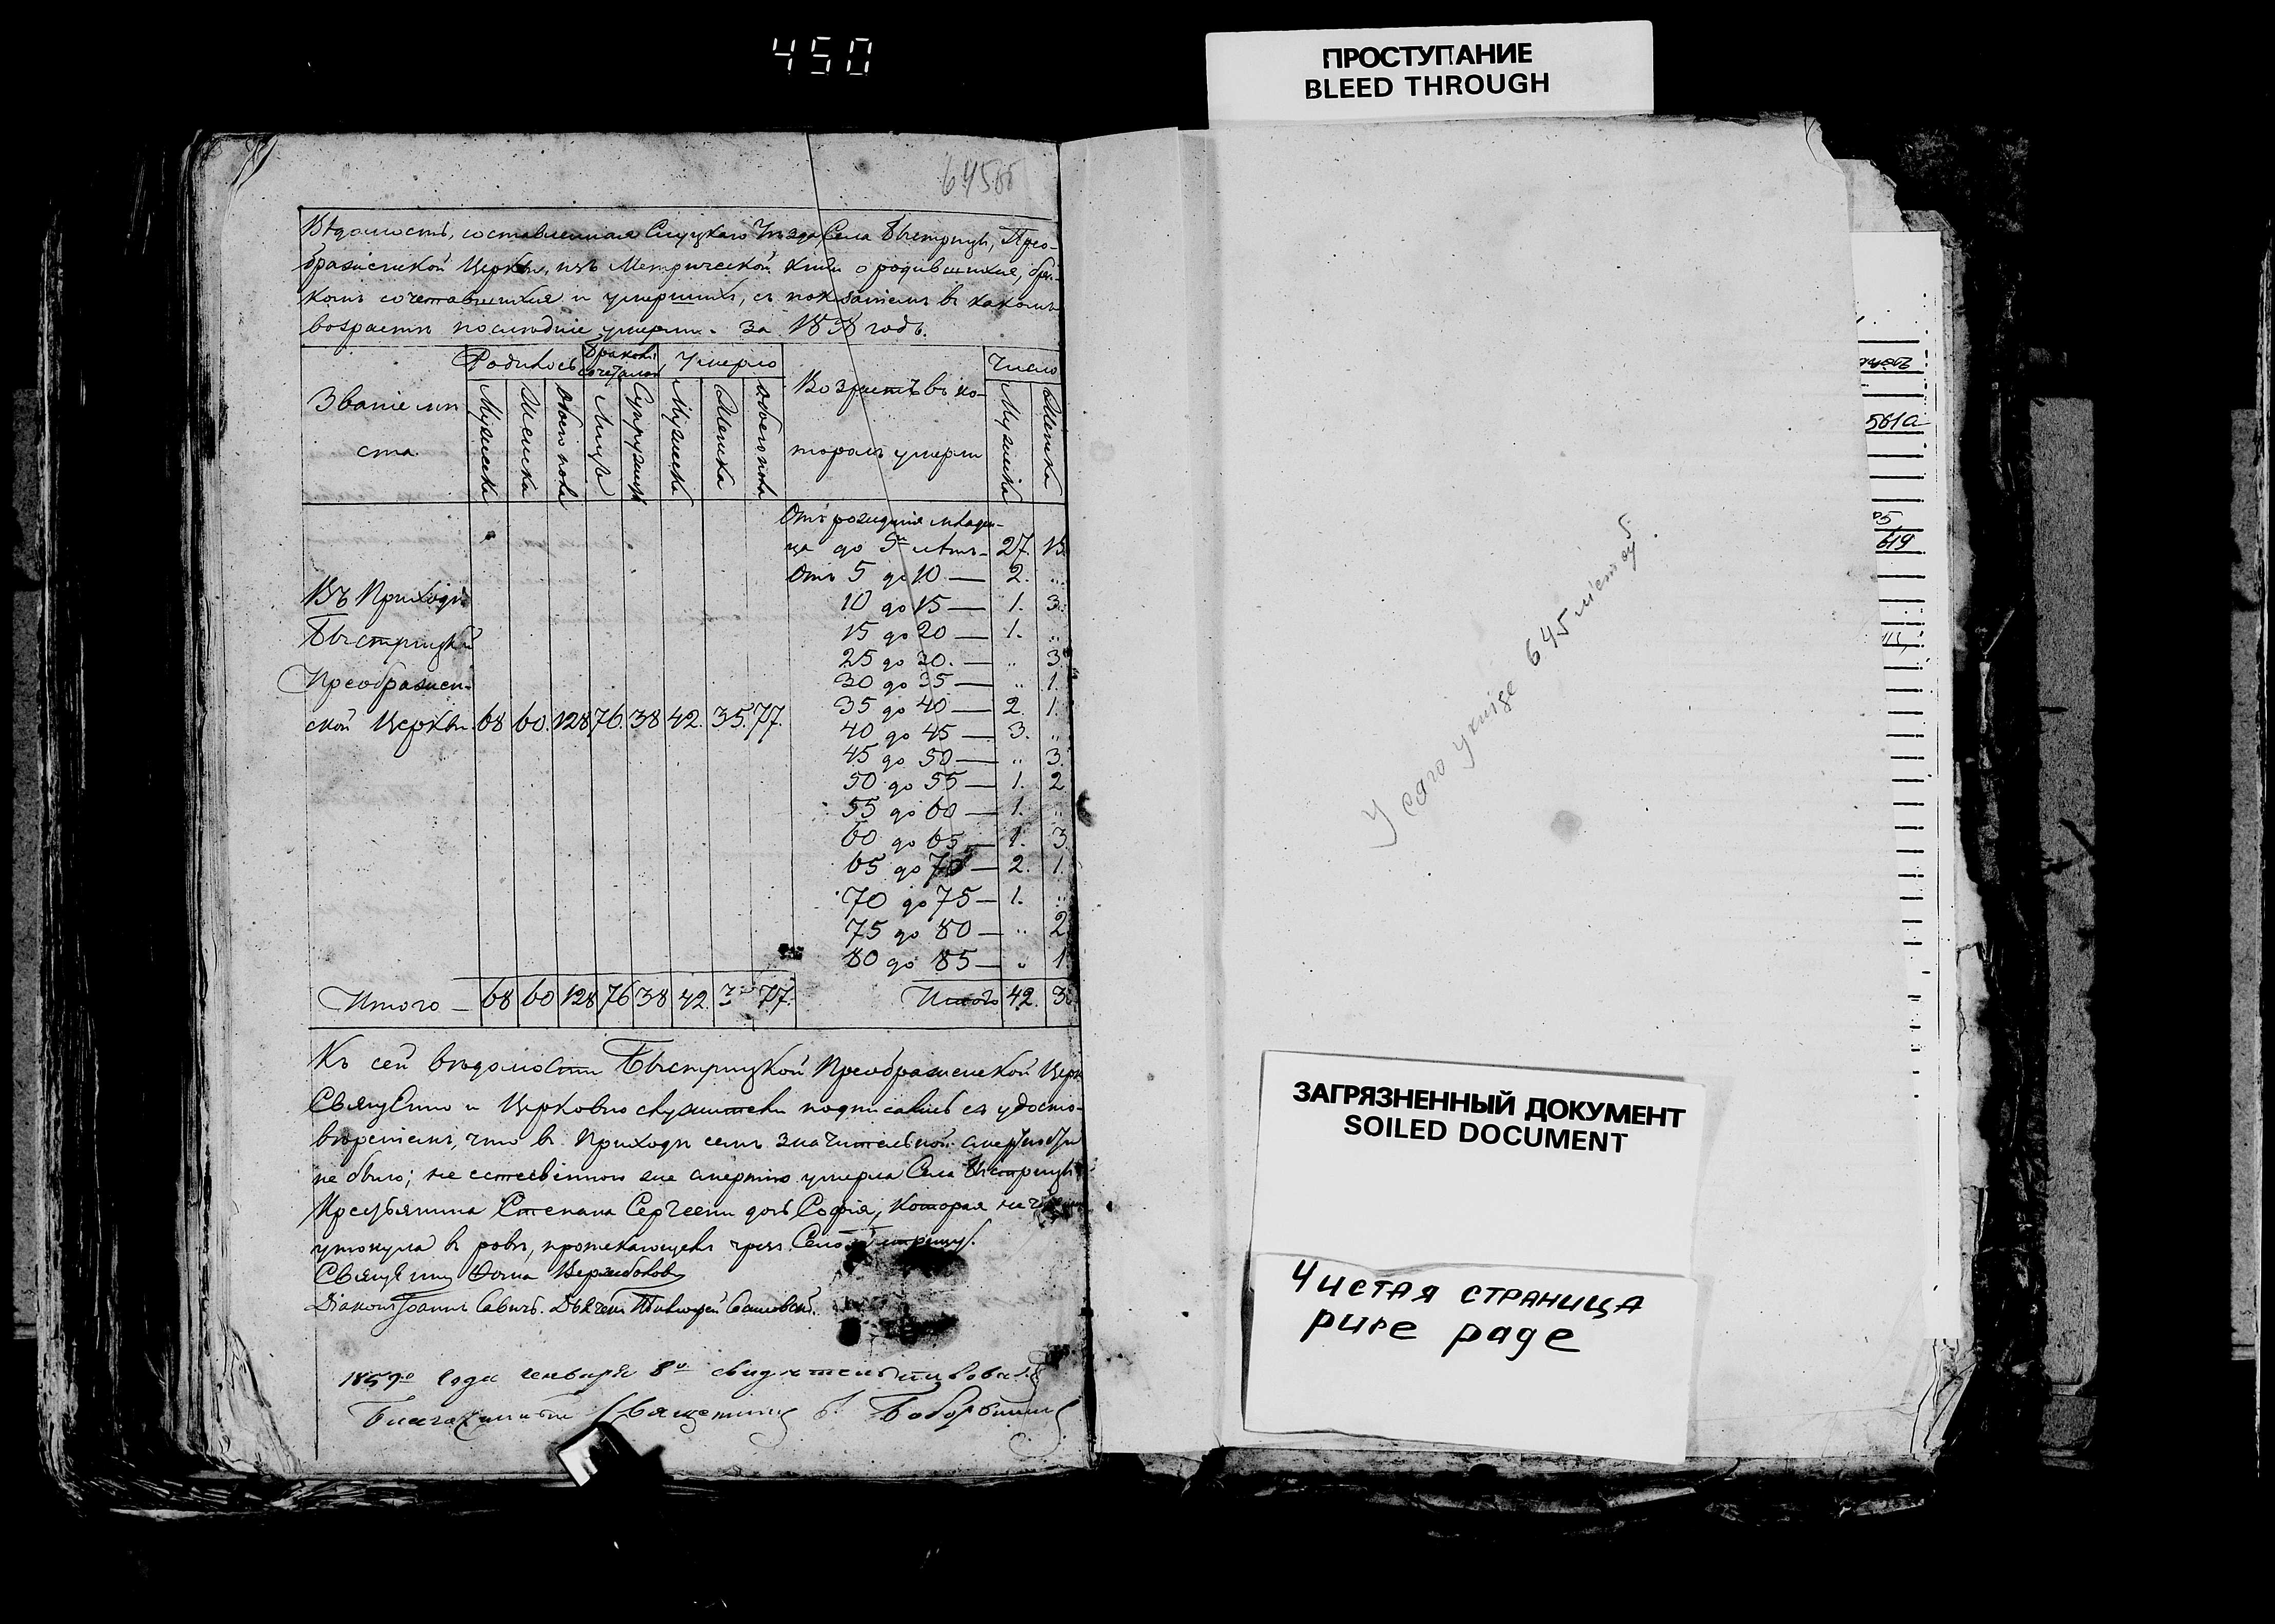 450
ПРОСТУПАНИЕ
BLEED THROUGH
645об
Вѣдомость, составленная Слуцкаго Уѣзда Села Быстрицы, Прео-
браженской Церкви, изъ Метрической книги о родившихся, бра-
комъ сочетавшихся и умершихъ, съ показаніемъ въ какомъ
возрастѣ послѣдніе умерли. За 1858 годъ.
Званіе мѣ-
ста.
Родилось
Бракомъ сочеталось
Умерло
Возрастъ въ ко-
торомъ умерли
Число
Мужеска
Женска
Обоего пола
Лицъ
Супружествъ
Мужеска
Женска
Обоего пола
Мужеска
Женска
Отъ рожденія младен-
ца до 5и лѣтъ - 27. 15.
Отъ 5 до 10 — 2. "
10 до 15 — 1. 3.
15 до 20 — 1. "
25 до 30. — " 3.
30 до 35 — " 1.
35 до 40 — 2. 1.
40 до 45 — 3. "
45 до 50 — " 3.
50 до 55 — 1. 2
55 до 60 — 1. "
60 до 65 — 1. 3.
65 до 70 — 2. 1.
70 до 75 — 1. "
75 до 80 — " 2
80 до 85 — " 1
Въ Приходѣ
Быстрицкой
Преображен-
ской Церкви. 68 60. 128 76. 38 42. 35. 77.
Итого — 68 60 128 76 38 42. 35 77.
Итого 42. 35
Къ сей вѣдомости Быстрицкой Преображенской Церк.
Священно и Церковно служители подписались съ удосто-
вѣреніемъ, что въ Приходѣ семъ значительной смертности
не было; не естественною же смертію умерла Села Быстрицы
Крестьянина Степана Сергеени дочь Софія, которая
утонула въ ровѣ, протекающемъ чрезъ Село Быстрицу.
Священникъ Фома
Діаконъ Іоаннъ Савичъ. Дьячекъ
1859го года генваря 8го свидѣтельствовалъ
Благочинный Священникъ
У сяго у книге 645 лістоў.
561а
619
ЗАГРЯЗНЕННЫЙ ДОКУМЕНТ
SOILED DOCUMENT
Чистая страница
pure page